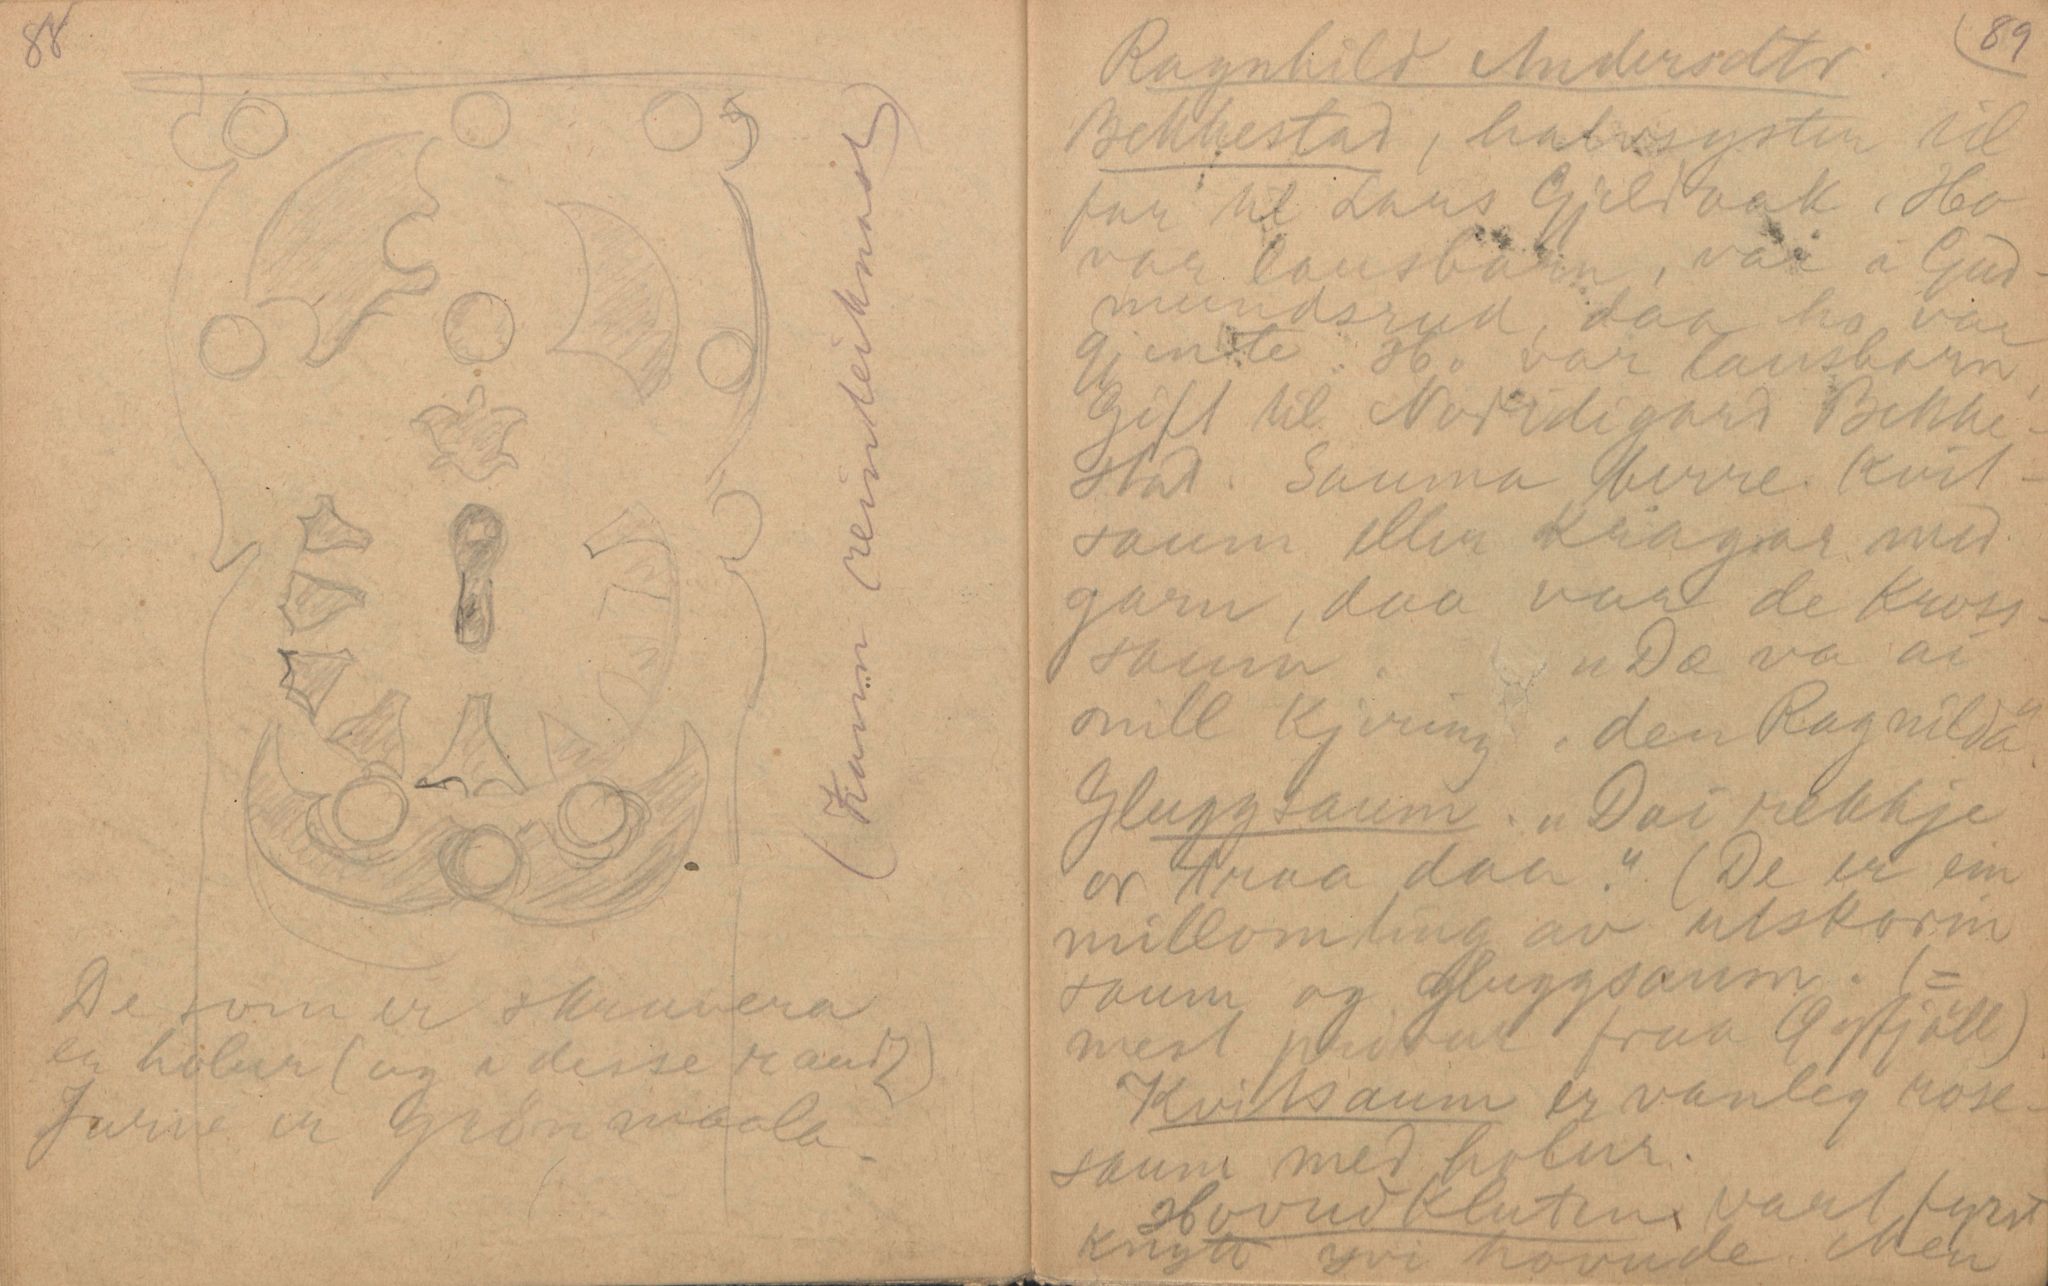 88
(Kunn reinteiknast)
De som er skruvera
er holur (og i desse raudt)
Furue er grönmaala.
89
Ragnhild Andersdtr.
Bekkestad, halvsyster til
far til Lars Gjeldvak. Ho
var lausbarn, var i Gud-
mundsrud, daa ho var
gjente. Ho var lausbarn,
Gift til Nordigard Bekke-
stad. Sauma berre kvit-
saum eller kragar med
garn, daa var de kross-
saum. "De va ai
snill kjering, den Ragnilda"
Gluggsaum. "Dai rekkje
or traa daa." (De er ein
millomting av utskorin
saum og gluggsaum. (=
mest prikur fraa Öyfjöll)
Kvitsaum er vanleg rose-
saum med holur.
Hovudkluten vart fyrst
knytt yvi hovude. Men